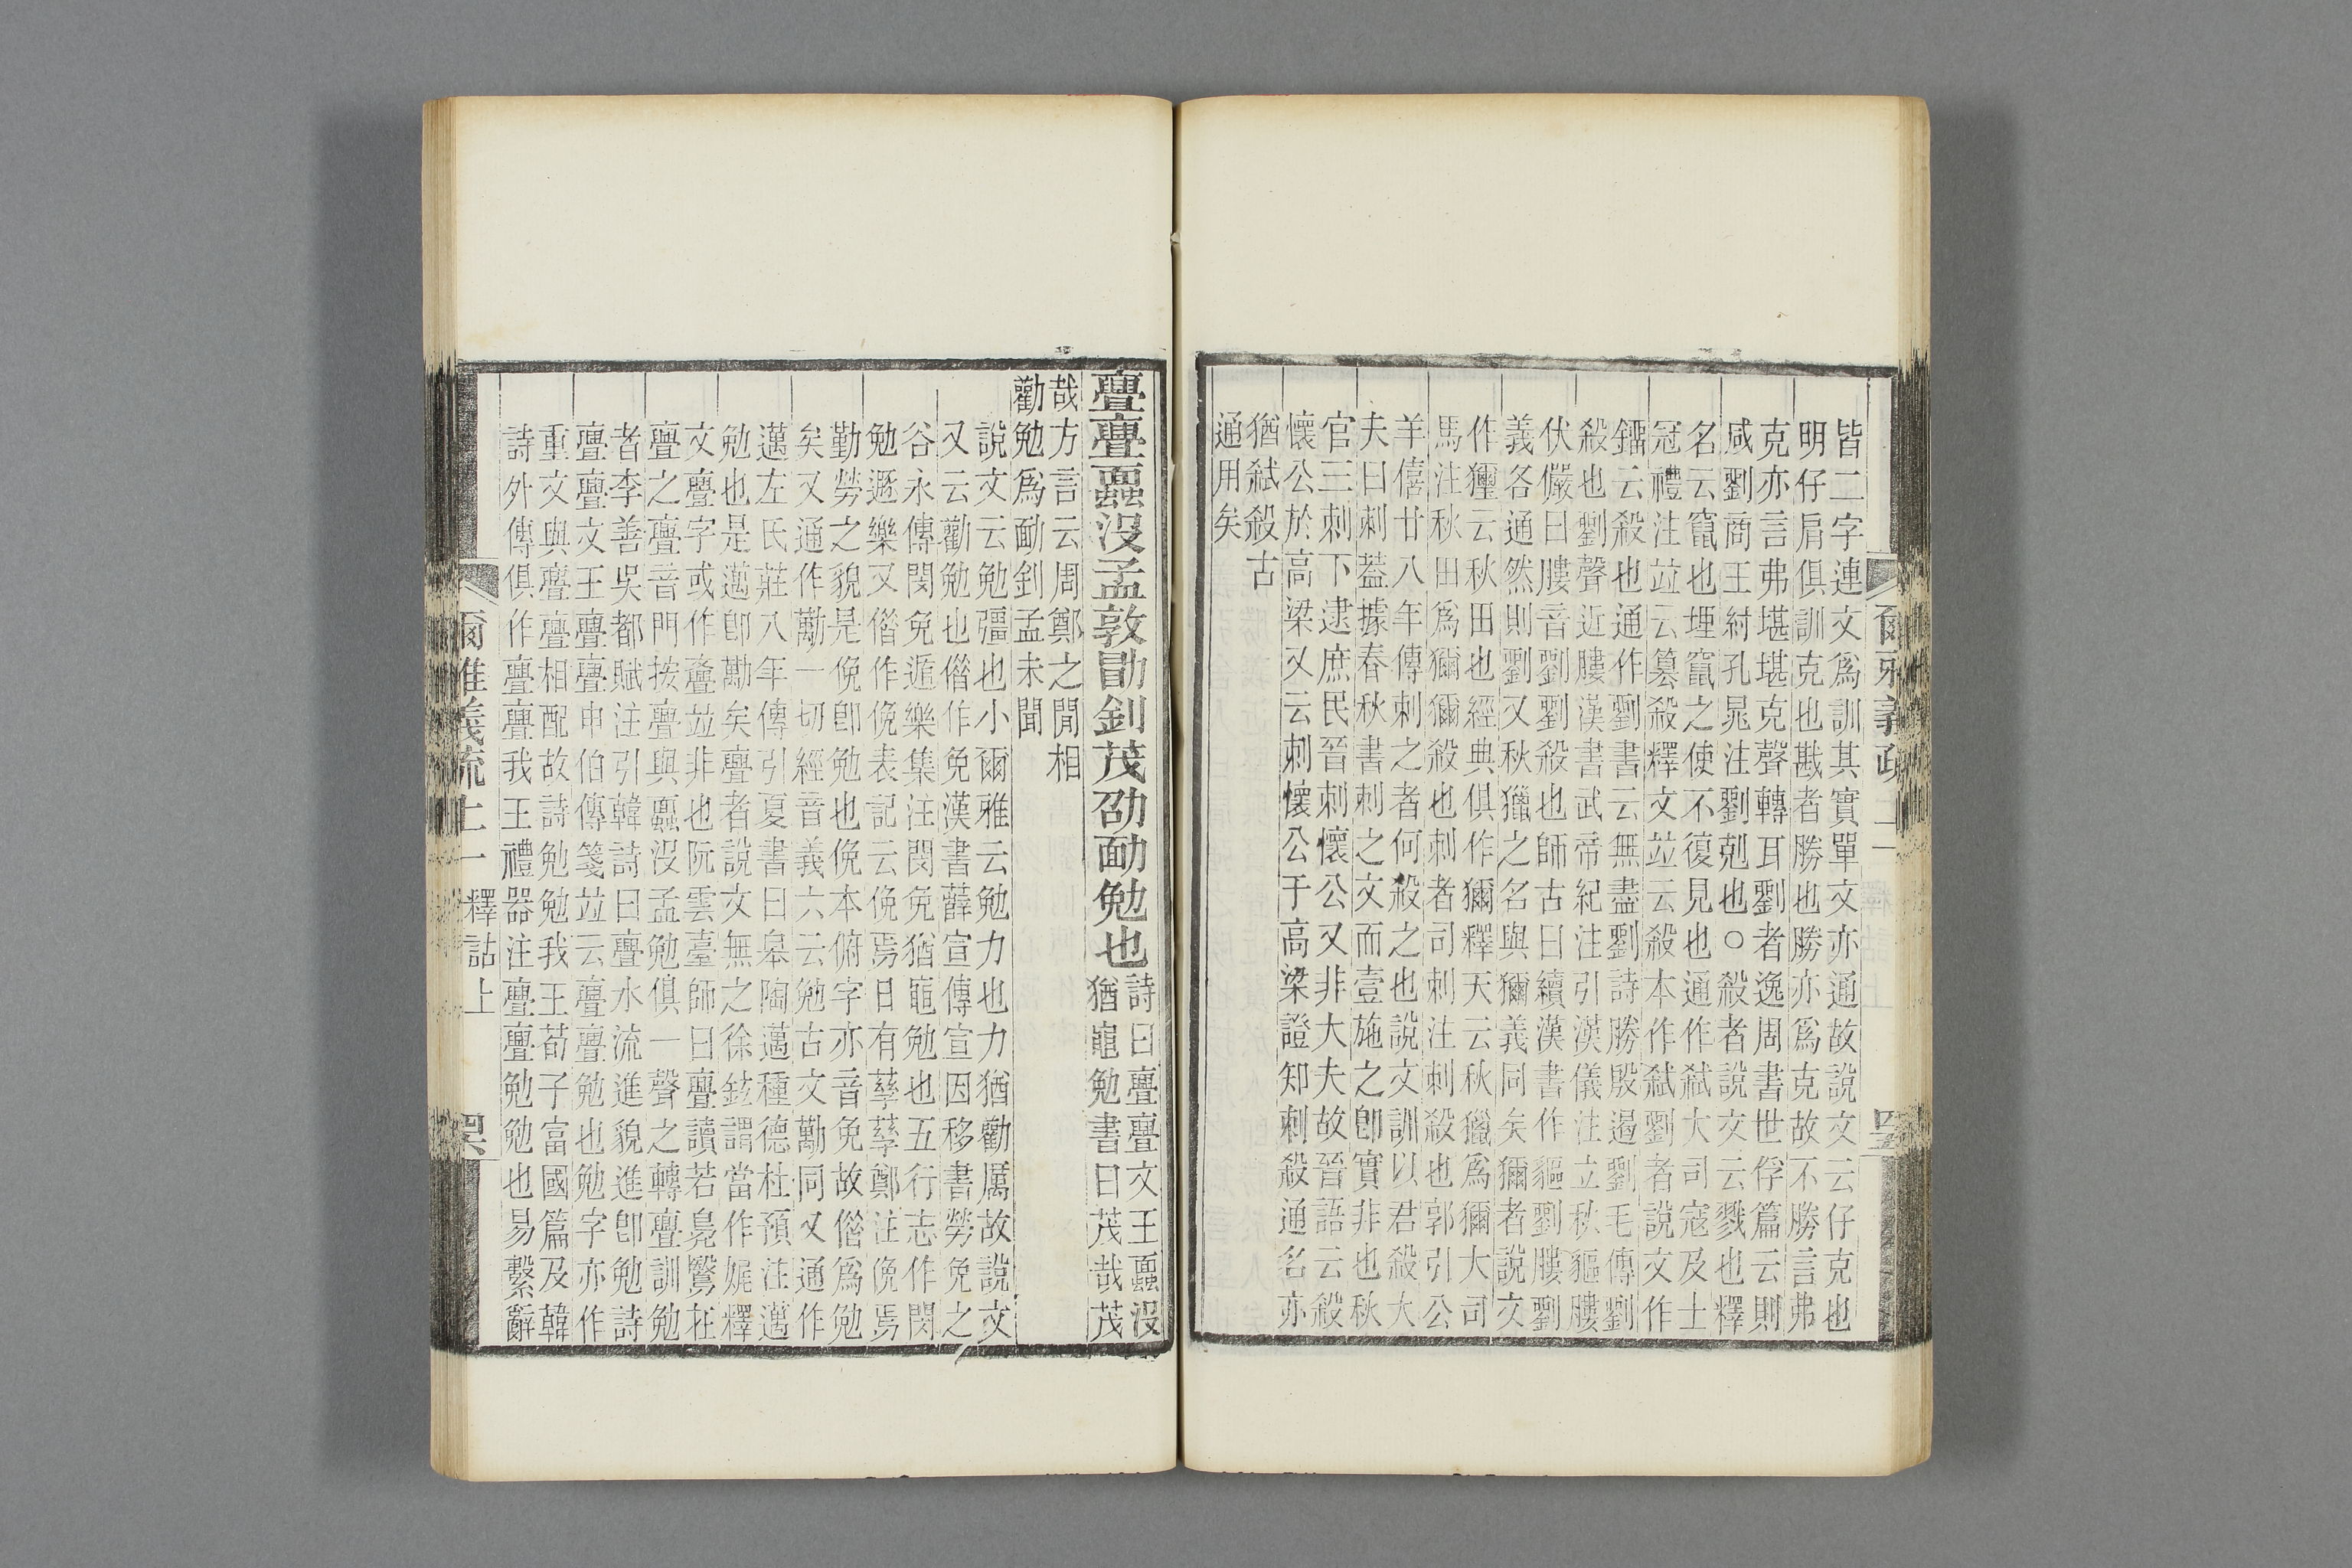 皆二字連文爲訓其實單文亦通故說文云仔克也
明仔肩俱訓克也戡者勝也勝亦爲克故不勝言弗
克亦言弗堪堪克聲轉耳劉者逸周書世俘篇云則
咸劉商王紂孔晁注劉剋也○殺者說文云戮也釋
名云竄也埋竄之使不復見也通作弒大司寇及士
冠禮注竝云篡殺釋文竝云殺本作弒劉者說文作
鐂云殺也通作劉書云無盡劉詩勝殷遏劉毛傳劉
殺也劉聲近膢漢書武帝紀注引漢儀注立秋貙膢
伏儼曰膢音劉劉殺也師古曰續漢書作貙劉膢劉
義各通然則劉又秋獵之名與獮義同矣獮者說文
作玁云秋田也經典俱作獮釋天云秋獵爲獮大司
馬注秋田爲獮獮殺也刺者司刺注刺殺也郭引公
羊僖廿八年傳刺之者何殺之也說文訓以君殺大
夫曰刺葢據春秋書刺之文而壹施之卽實非也秋
官三刺下逮庶民晉刺懷公又非大夫故晉語云殺
懷公於高梁又云刺懷公于高梁證知刺殺通名亦
猶弒殺古
通用矣
爾雅義疏 上一 釋詁上
亹亹蠠沒孟敦勖釗茂劭勔勉也詩曰亹亹文王蠠沒
猶黽勉書曰茂哉茂
哉方言云周鄭之閒相
勸勉爲勔釗孟未聞
說文云勉彊也小爾雅云勉力也力猶勸厲故說文
又云勸勉也偺作免漢書薛宣傳宣因移書勞免之
谷永傳閔免遁樂集注閔免猶黽勉也五行志作閔
勉遯樂又偺作俛表記云俛焉日有孳孳鄭注俛焉
勤勞之貌是俛卽勉也俛本俯字亦音免故偺爲勉
矣又通作勱一切經音義六云勉古文勱同又通作
邁左氏莊八年傳引夏書曰皋陶邁種德杜預注邁
勉也是邁卽勱矣亹者說文無之徐鉉謂當作娓釋
文亹字或作斖竝非也阮雲臺師曰亹讀若鳧鷖在
亹之亹音門按亹與蠠沒孟勉俱一聲之轉亹訓勉
者李善吳都賦注引韓詩曰亹水流進貌進卽勉詩
亹亹文王亹亹申伯傳箋竝云亹亹勉也勉字亦作
重文與亹亹相配故詩勉勉我王荀子富國篇及韓
詩外傳俱作亹亹我王禮器注亹亹勉勉也易繫辭
爾雅義疏 上一 釋詁上